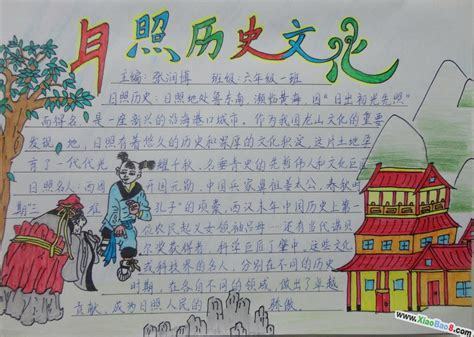 日照历史文化
主编: 张润博 班级: 六年级一班
日照历史: 日照地处鲁东南, 濒临黄海, 因“日出初光先照”
而得名, 是一座新兴的沿海港口城市。作为我国龙山文化的重要
发现地, 日照有着悠久的历史和累厚的文化积淀, 这片土地孕
育了一代代光耀千秋、名垂青史的先哲伟人和文化
日照名人: 西周开国元勋、中国兵家鼻祖姜太公, 春秋时
期三难“孔子”的项橐, 西汉末年中国历史上第一
位农民起义女领袖吕母……还有当代诺贝
尔奖获得者、科学巨匠丁肇中, 这些文化
或科技界的名人, 分别在不同的历史
时期, 在各自不同的领域, 做出了卓越
贡献, 成为日照人民的骄傲。
www.XiaoBao8.com